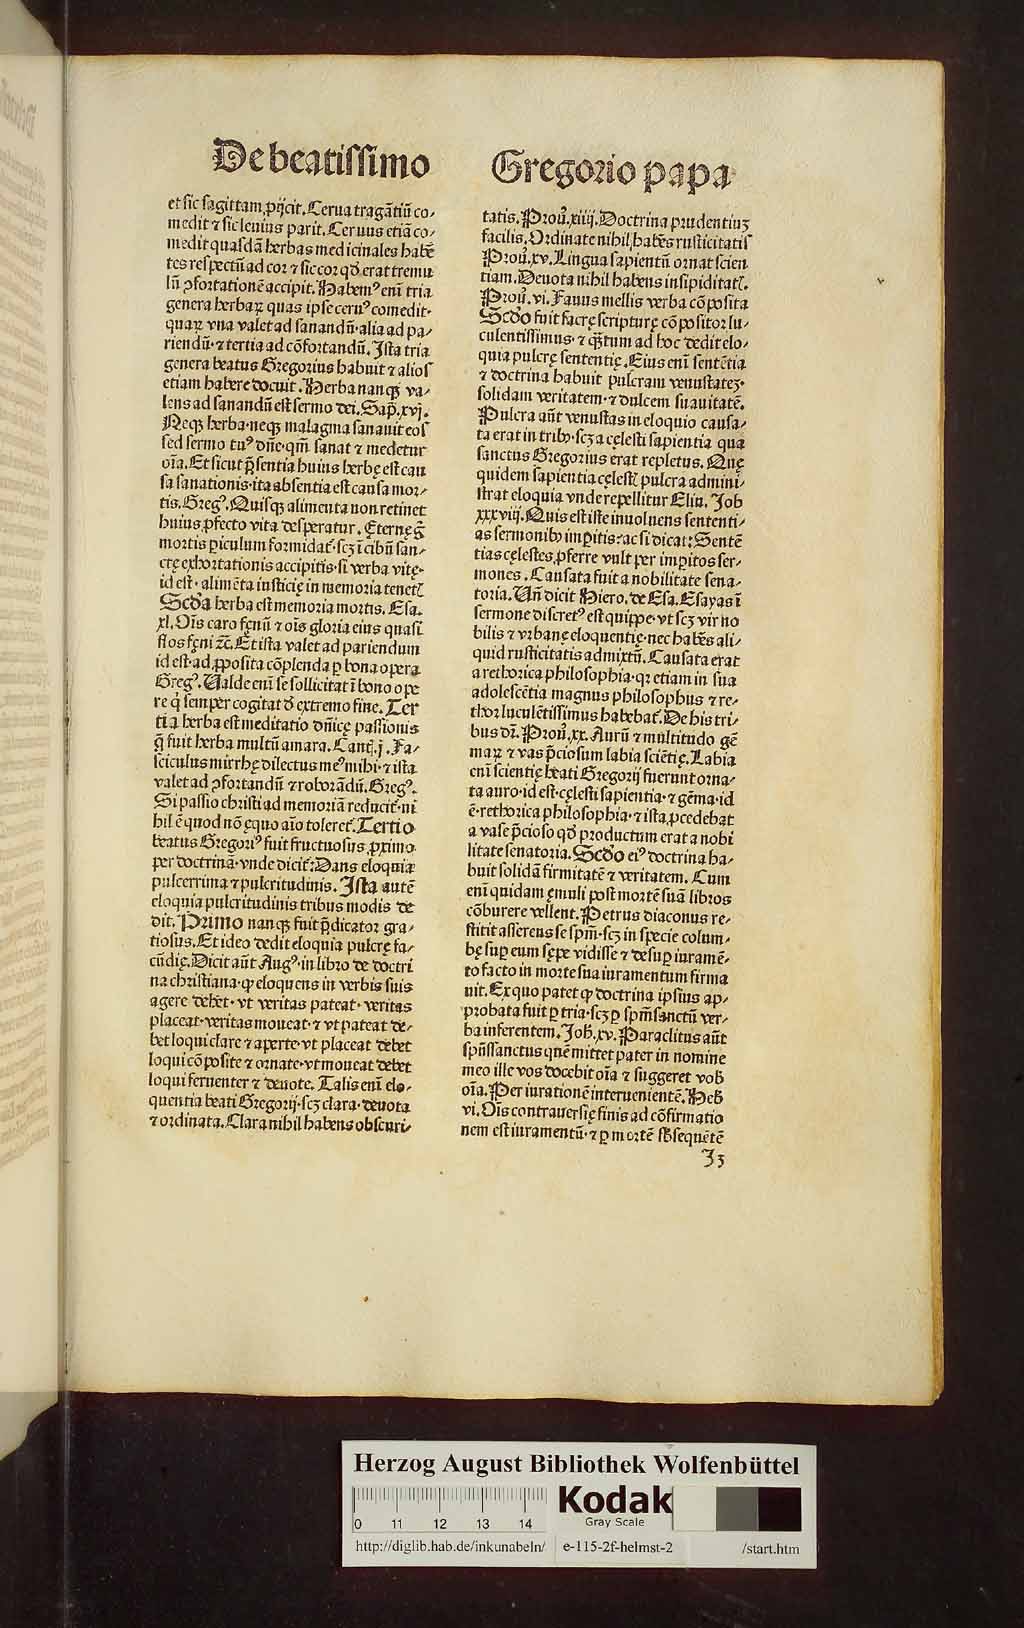 De beatissimo
et sic sagittam ꝓijcit. Cerua tragātiū co-
medit ⁊ sic leuius parit. Ceruus etiā co-
medit quasdā herbas medicinales habē
tes respectū ad cor ⁊ sic cor qđ erat tremu
lū ꝯfortationē accipit. Habemꝰ enī tria
genera herbaꝝ quas ipse ceruꝰ comedit.
quaꝝ vna valet ad sanandū. alia ad pa-
riendū. ⁊ tertia ad cōfortandū. Ista tria
genera beatus Gregorius habuit ⁊ alios
etiam habere docuit. Herba nanqꝫ va-
lens ad sanandū est sermo dei. Sap̄. xvj.
Neqꝫ herba. neqꝫ malagma sanauit eos
sed sermo tuꝰ dn̄e. qm̄ sanat ⁊ medetur
oīa. Et sicut p̄sentia huius herbę est cau
sa sanationis. ita absentia est causa mor-
tis. Gregꝰ. Quisqꝫ alimenta non retinet
huius ꝓfecto vita desperatur. Eternę ḡ
mortis ꝑiculum formidat᷑. scꝫ ī cibū san-
ctę exhortationis accipitis. si verba vitę.
id est. alimēta iusticię in memoria tenet᷑
Scđa herba est memoria mortis. Esa.
xl. Oīs caro fęnū ⁊ oīs gloria eius quasi
flos fęni ⁊c̄. Et ista valet ad pariendum
id est. ad ꝓposita cōplenda ꝑ bona opera
Gregꝰ. Ualde enī se sollicitat ī bono ope
re q̇ semper cogitat đ extremo fine. Ter
tia herba est meditatio dn̄icę passionis
q̄ fuit herba multū amara. Cant̄. j. Fa-
sciculus mirrhę dilectus meꝰ mihi. ⁊ ista
valet ad ꝯfortandū ⁊ roborādū. Gregꝰ.
Si passio christi ad memoriā reducit᷑. ni
hil ē quod nō ęquo aīo toleret᷑. Tertio
beatus Gregoriꝰ fuit fructuosus ꝓximo
per doctrinā. vnde dicit᷑: Dans eloquia
pulcerrima ⁊ pulcritudinis. Ista autē
eloquia pulcritudinis tribus modis de
dit. Primo nanqꝫ fuit p̄dicator gra-
tiosus. Et ideo dedit eloquia pulcrę fa-
cūdię. Dicit aūt Augꝰ. in libro de doctri
na christiana. ꝙ eloquens in verbis suis
agere debet. vt veritas pateat. veritas
placeat. veritas moueat. ⁊ vt pateat de-
bet loqui clare ⁊ aperte. vt placeat debet
loqui cōposite ⁊ ornate. vt moueat debet
loqui feruenter ⁊ deuote. Talis enī elo-
quentia beati Gregorij. scꝫ clara. deuota
⁊ ordinata. Clara nihil habens obscuri-
Gregorio papa
tatis. Prou̅. xiiij. Doctrina prudentiuꝫ
facilis. Ordinate nihil habēs rusticitatis
Prou̅. xv. Lingua sapientū ornat scien
tiam. Deuota nihil habens insipiditat᷑.
Prou̅. vi. Fauus mellis verba cōposita
Scđo fuit sacrę scripturę cōpositor lu-
culentissimus. ⁊ qꝫtum ad hoc dedit elo-
quia pulcrę sententię. Eius enī sentētia
⁊ doctrina habuit pulcram venustateꝫ.
solidam veritatem. ⁊ dulcem suauitatē.
Pulcra aūt venustas in eloquio causa-
ta erat in tribꝰ. scꝫ a cęlesti sapientia qua
sanctus Gregorius erat repletus. Quę
quidem sapientia cęlest᷑ pulcra admini-
strat eloquia vnde repellitur Eliu. Job
xxxviij. Quis est iste inuoluens sententi-
as sermonibꝰ imꝑitis: ac si dicat: Sentē
tias cęlestes ꝓferre vult per imꝑitos ser-
mones. Causata fuit a nobilitate sena-
toria. Un̄ dicit Hiero. de Esa. Esayas ī
sermone discretꝰ est quippe. vt scꝫ vir no
bilis ⁊ vrbanę eloquentię. nec habēs ali-
quid rusticitatis admixtū. Causata erat
a rethorica philosophia. qꝛ etiam in sua
adolescētia magnus philosophus ⁊ re-
thor luculētissimus habebat᷑. De his tri-
bus dr̄. Prou̅. xx. Aurū ⁊ multitudo gē
maꝝ ⁊ vas p̄ciosum labia sciētię. Labia
enī scientię beati Gregorij fuerunt orna-
ta auro. id est. cęlesti sapientia. ⁊ gēma. id
ē. rethorica philosophia. ⁊ ista ꝓcedebat
a vase p̄cioso qđ productum erat a nobi
litate senatoria. Scđo eiꝰ doctrina ha-
buit solidā firmitatē ⁊ veritatem. Cum
enī quidam ęmuli post mortē suā libros
cōburere vellent. Petrus diaconus re-
stitit asserens se spm̄. scꝫ in specie colum-
bę suꝑ eum sępe vidisse ⁊ desuꝑ iuramē-
to facto in morte sua iuramentum firma
uit. Ex quo patet ꝙ doctrina ipsius ap-
probata fuit ꝑ tria. scꝫ ꝑ spm̄sanctū ver-
ba inferentem. Joh̄. xv. Paraclitus aūt
spūssanctus quē mittet pater in nomine
meo ille vos docebit oīa ⁊ suggeret vob̄
oīa. Per iurationē interuenientē. Heb̄
vi. Oīs contrauersię finis ad cōfirmatio
nem est iuramentū. ⁊ ꝑ mortē sb̄sequētē
J3
Herzog August Bibliothek Wolfenbüttel
0 11 12 13 14
Kodak
Gray Scale
http://diglib.hab.de/inkunabeln/ e-115-2f-helmst-2 /start.htm